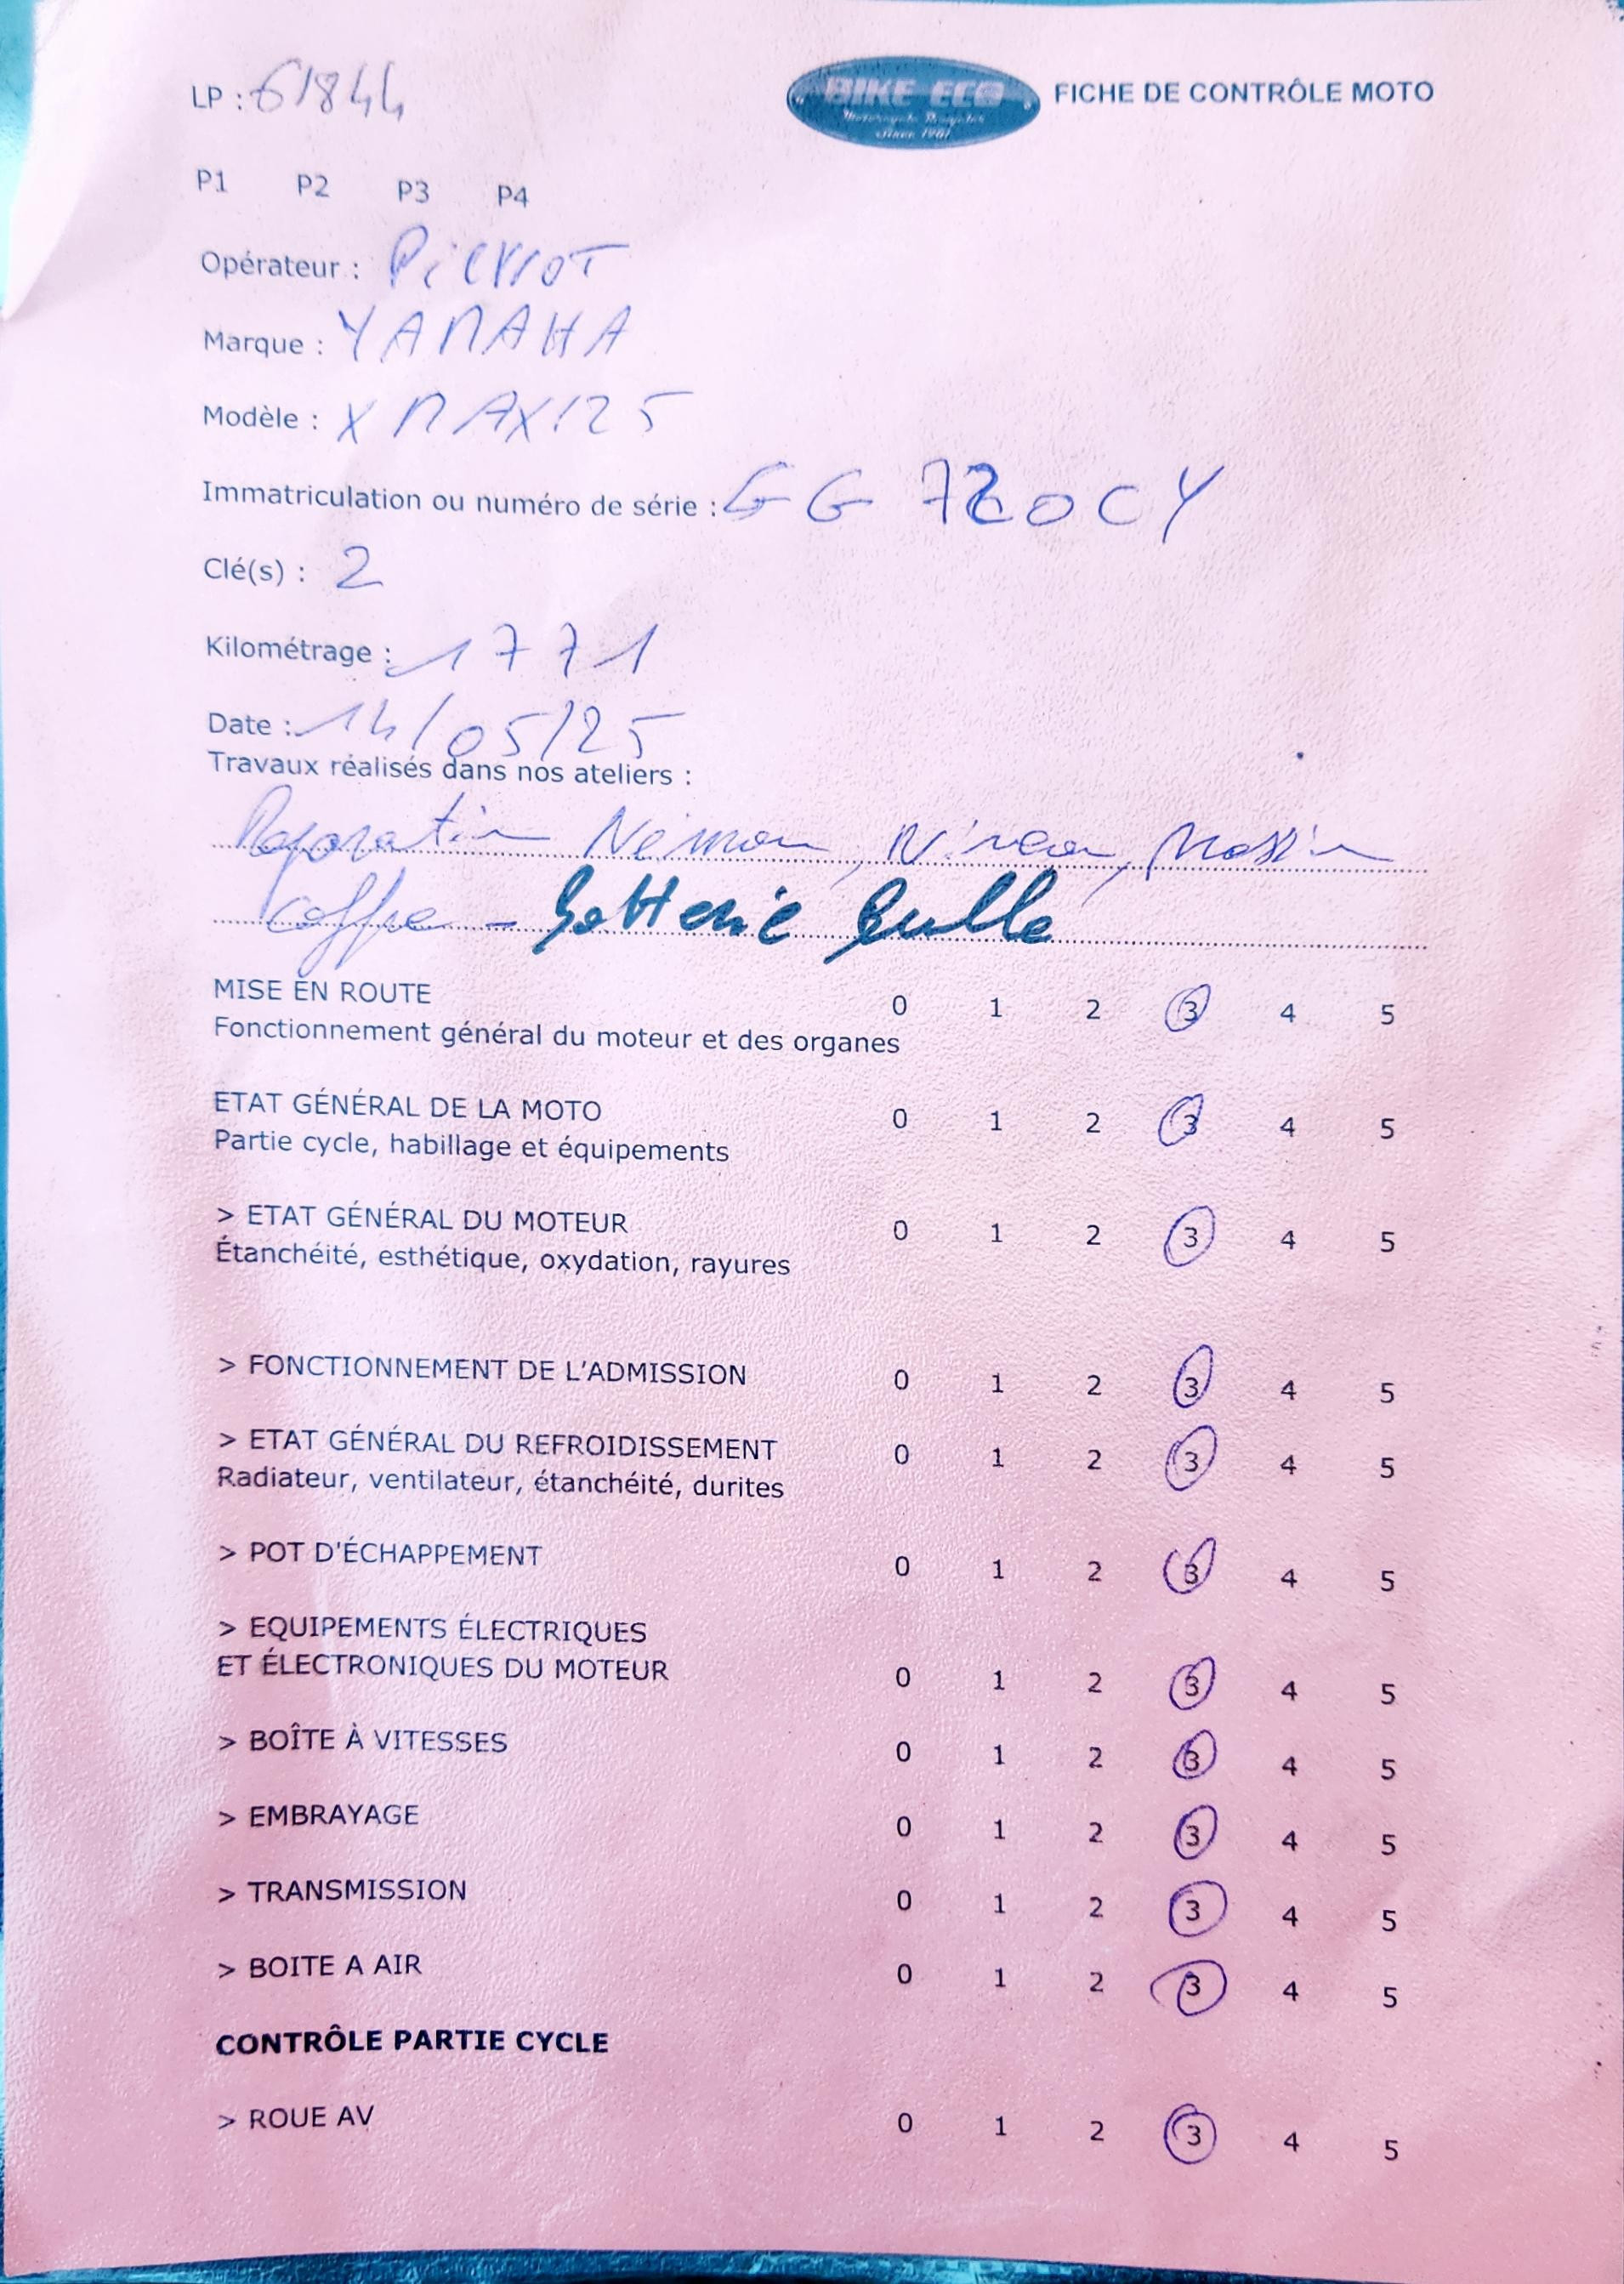 LP : 61844
BIKE ECO
Motorcycle Recycler
Since 1987
FICHE DE CONTRÔLE MOTO
P1 P2 P3 P4
Opérateur : Pierrot
Marque : YAMAHA
Modèle : XMAX125
Immatriculation ou numéro de série : GG 720CY
Clé(s) : 2
Kilométrage : 1771
Date : 14/05/25
Travaux réalisés dans nos ateliers :
Reparation Neiman, Niveau,
Coffre - batterie bulle
MISE EN ROUTE 0 1 2 3 4 5
Fonctionnement général du moteur et des organes
ETAT GÉNÉRAL DE LA MOTO 0 1 2 3 4 5
Partie cycle, habillage et équipements
> ETAT GÉNÉRAL DU MOTEUR 0 1 2 3 4 5
Étanchéité, esthétique, oxydation, rayures
> FONCTIONNEMENT DE L'ADMISSION 0 1 2 3 4 5
> ETAT GÉNÉRAL DU REFROIDISSEMENT 0 1 2 3 4 5
Radiateur, ventilateur, étanchéité, durites
> POT D'ÉCHAPPEMENT 0 1 2 3 4 5
> EQUIPEMENTS ÉLECTRIQUES
ET ÉLECTRONIQUES DU MOTEUR 0 1 2 3 4 5
> BOÎTE À VITESSES 0 1 2 3 4 5
> EMBRAYAGE 0 1 2 3 4 5
> TRANSMISSION 0 1 2 3 4 5
> BOITE A AIR 0 1 2 3 4 5
CONTRÔLE PARTIE CYCLE
> ROUE AV 0 1 2 3 4 5